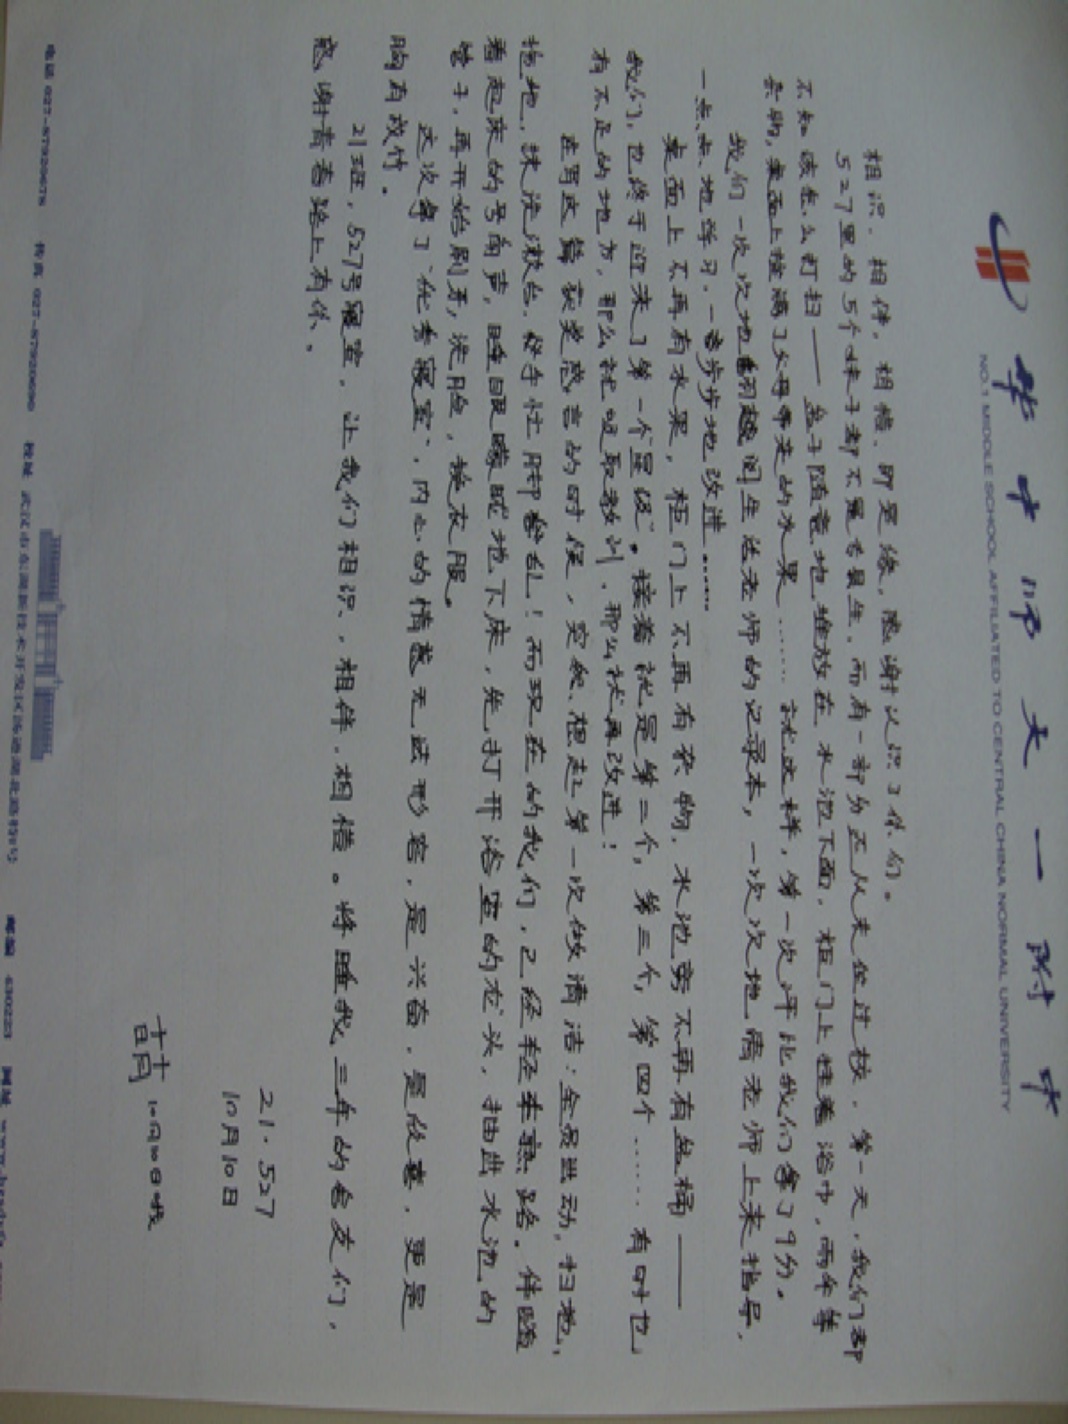 华中师大一附中
NO.1 MIDDLE SCHOOL AFFILIATED TO CENTRAL CHINA NORMAL UNIVERSITY
相识、相伴、相惜、即是缘,感谢认识了你们。
527里的5个妹子都不是专县生,而有一部分还从来位过校。第一天,我们都
不知该怎么打扫——盆子随意地堆放在水池下面,柜门上挂着浴巾,雨伞等
杂物,桌面上堆满了父母带来的水果……就这样,第一次评比我们拿了9分。
我们一次次地翻越阅生活老师的记录本,一次次地请老师上来指导,
一点点地学习,一步步地改进……
桌面上不再有水果,柜门上不再有杂物,水池旁不再有盆桶——
我们,也终于迎来了第一个星级。接着就是第二个,第三个,第四个……有时也
有不足的地方,那么就吸取教训,那么就再改进!
在写这篇获奖感言的时候,突然想起第一次做清洁:全员出动,扫地,
拖地,抹洗漱台,手忙脚乱!而现在的我们,已经轻车熟路。伴随
着起床的号角声,睡眼朦胧地下床,先打开浴室的龙头,抽出水池的
管子,再开始刷牙,洗脸,换衣服。
这次拿了“优秀寝室”,内心的情感无法形容,是兴奋,是欣喜,更是
胸有成竹。
21班,527号寝室,让我们相识,相伴,相惜。将陪我三年的舍友们,
感谢青春路上有你。
21.527
10月10日
10月10日哦
电话 027-87920678 传真 027-87920690 校址 武汉市东湖新技术开发区 邮编 430223 网址